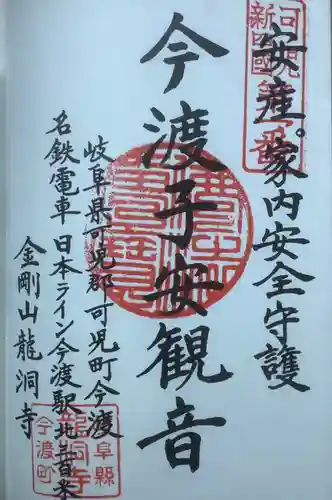 可児
新四國
第一番
安産。家内安全守護
今渡子安観音
岐阜県可児郡可児町今渡
名鉄電車 日本ライン今渡駅北三百米
金剛山龍洞寺
阜縣
龍洞寺
今渡町